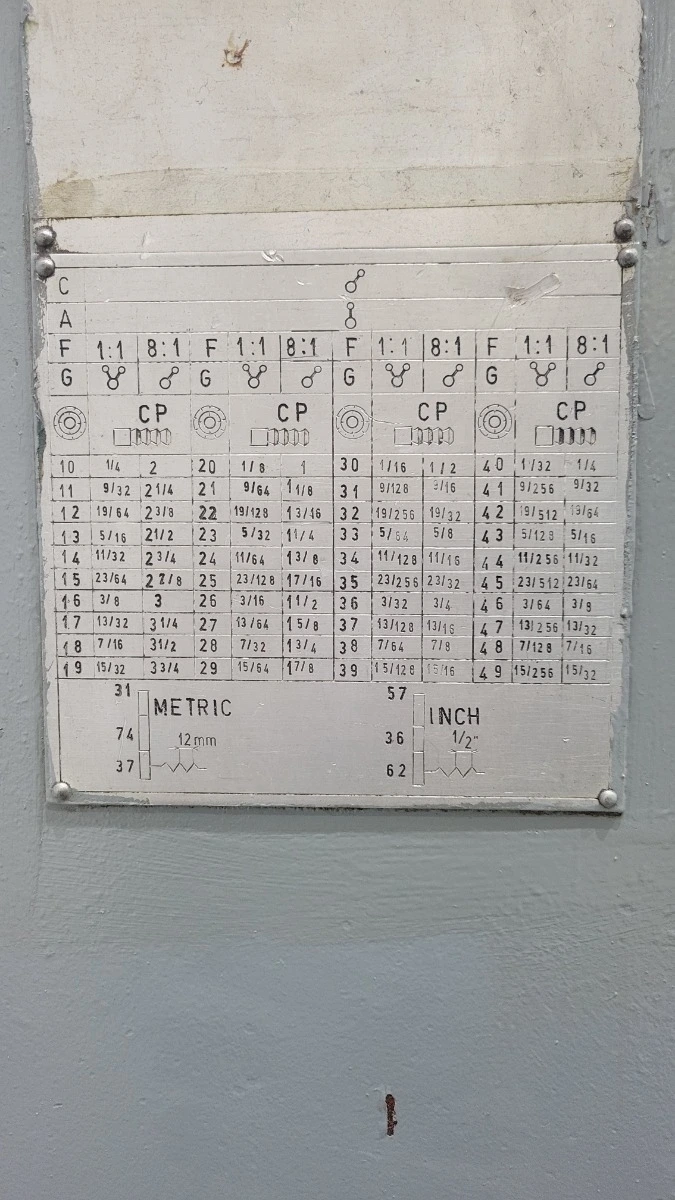 C
A
F 1:1 8:1 F 1:1 8:1 F 1:1 8:1 F 1:1 8:1
G G G G
CP CP CP CP
10 1/4 2 20 1/8 1 30 1/16 1/2 40 1/32 1/4
11 9/32 2 1/4 21 9/64 1 1/8 31 9/128 9/16 41 9/256 9/32
12 19/64 2 3/8 22 19/128 1 3/16 32 19/256 19/32 42 19/512 19/64
13 5/16 2 1/2 23 5/32 1 1/4 33 5/64 5/8 43 5/128 5/16
14 11/32 2 3/4 24 11/64 1 3/8 34 11/128 11/16 44 11/256 11/32
15 23/64 2 7/8 25 23/128 1 7/16 35 23/256 23/32 45 23/512 23/64
16 3/8 3 26 3/16 1 1/2 36 3/32 3/4 46 3/64 3/8
17 13/32 3 1/4 27 13/64 1 5/8 37 13/128 13/16 47 13/256 13/32
18 7/16 3 1/2 28 7/32 1 3/4 38 7/64 7/8 48 7/128 7/16
19 15/32 3 3/4 29 15/64 1 7/8 39 15/128 15/16 49 15/256 15/32
31 METRIC 57 INCH
74 12mm 36 1/2"
37 62